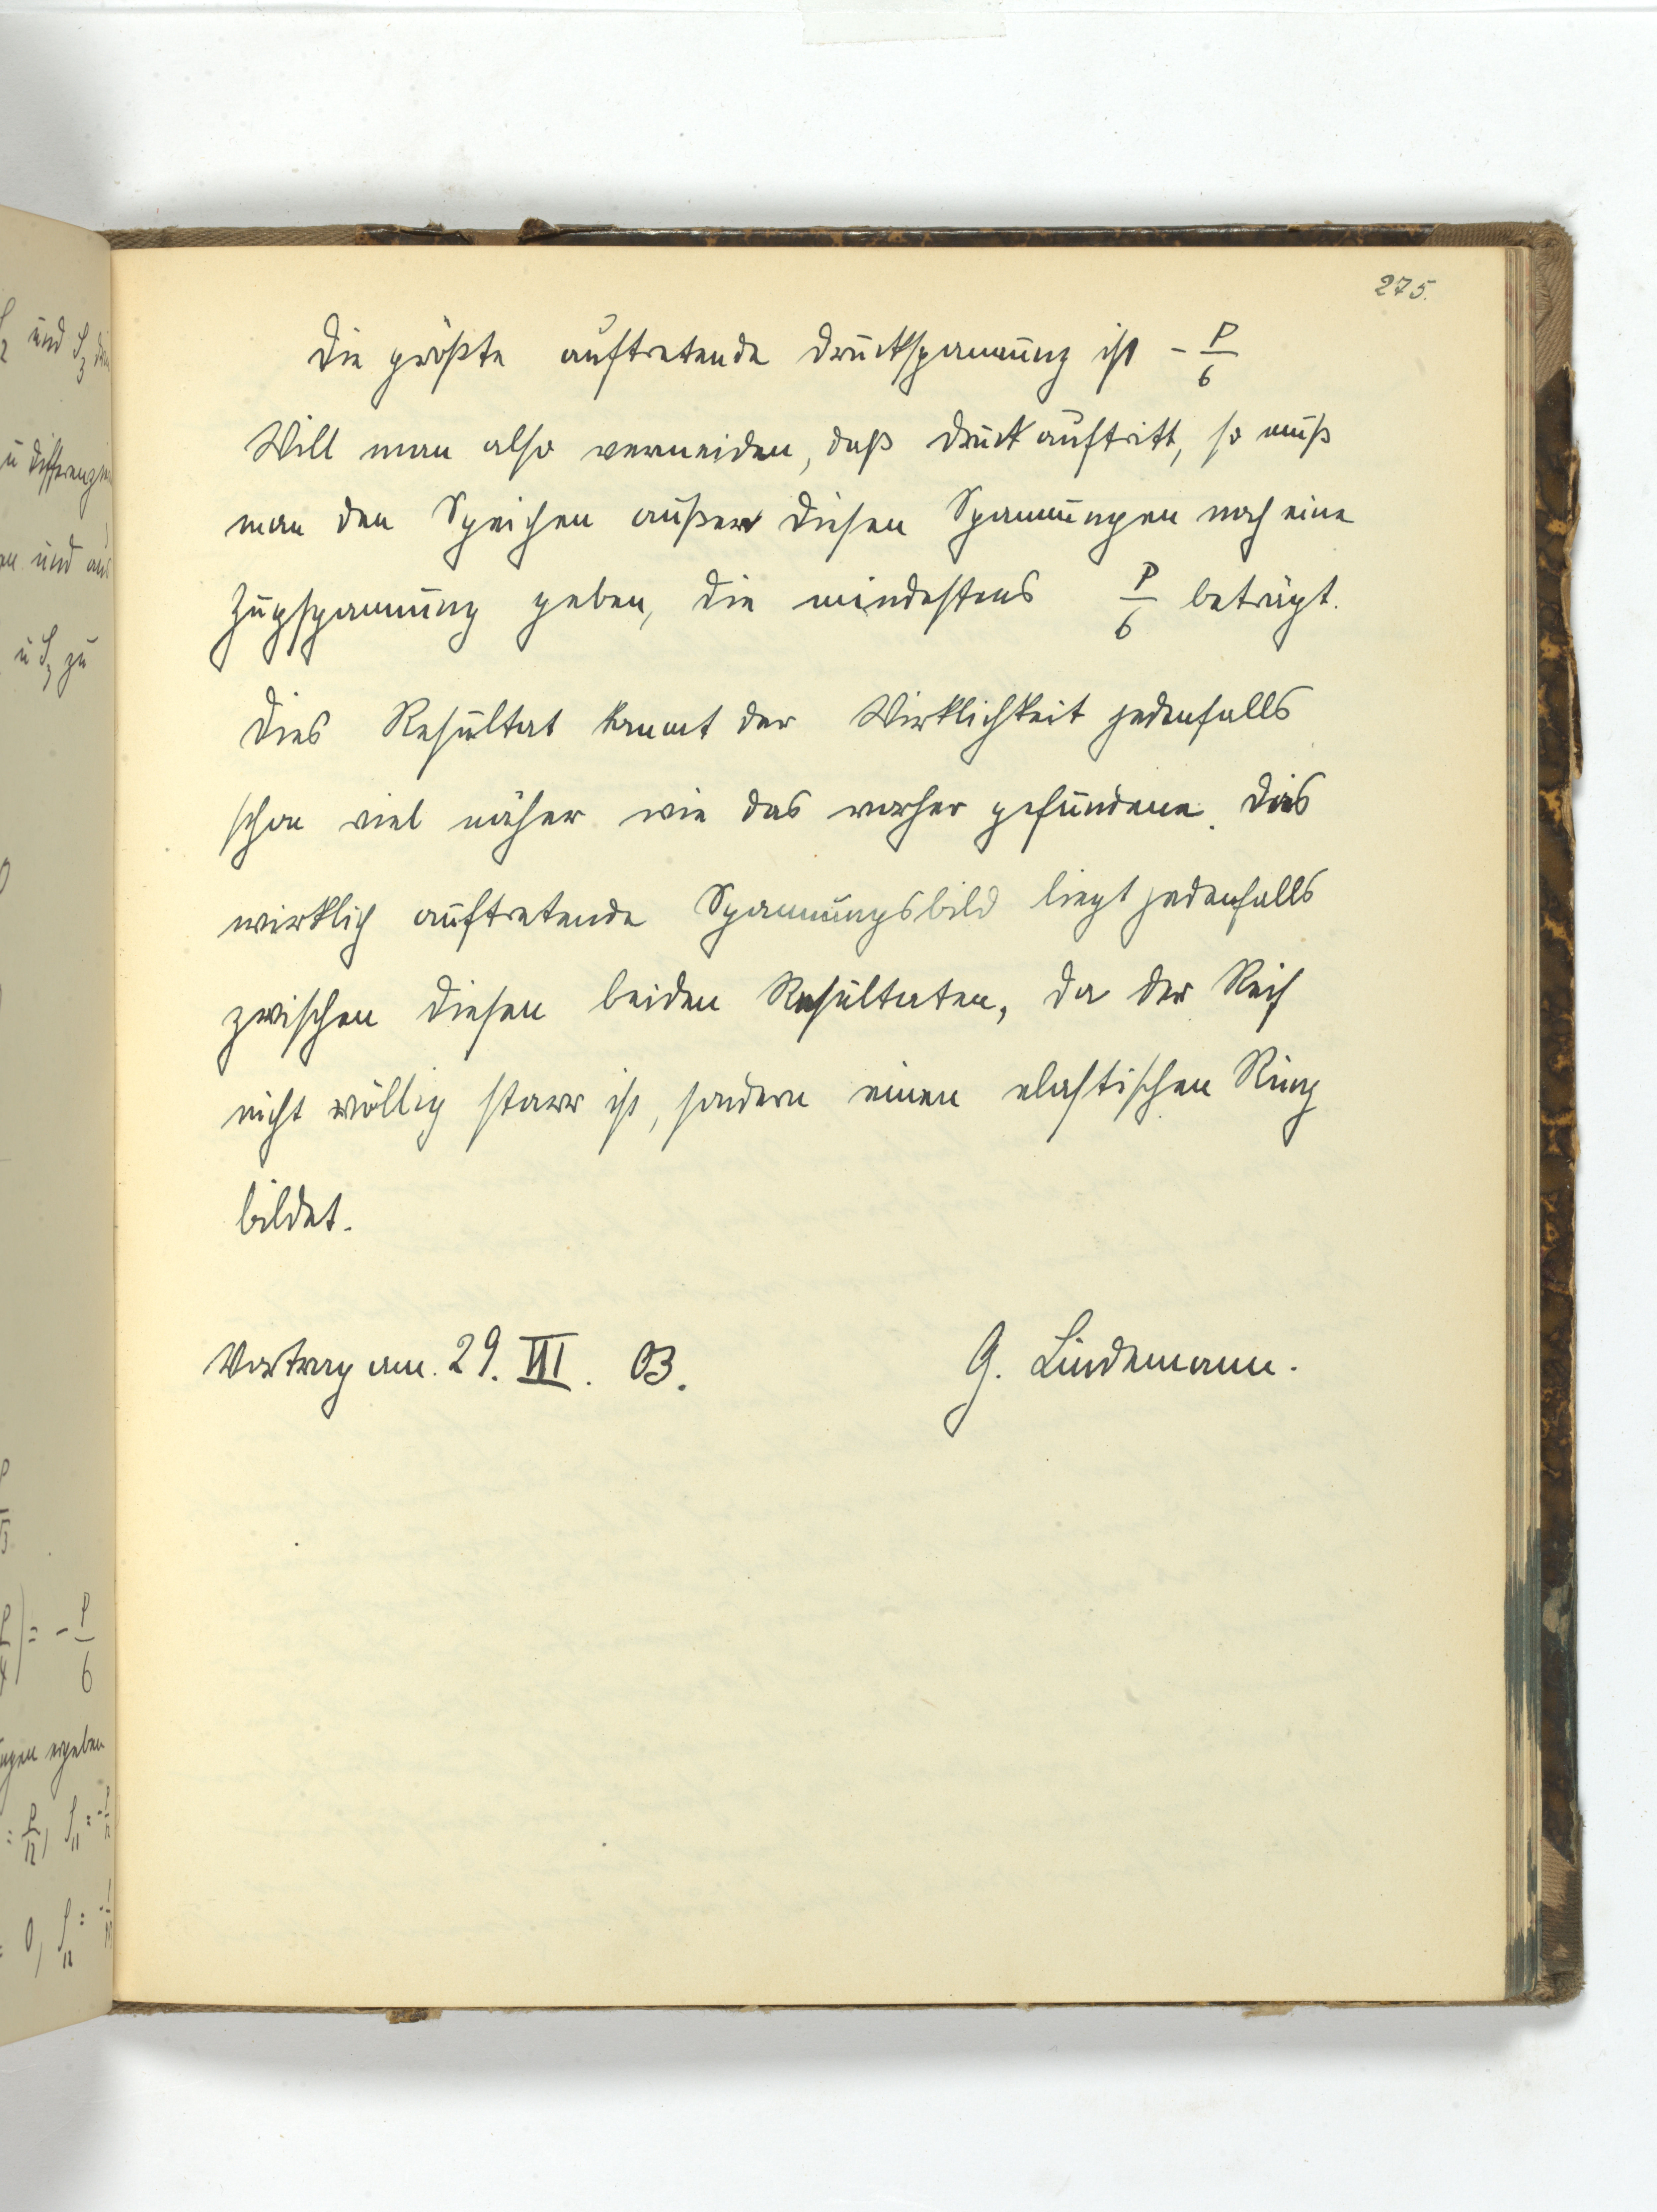 275.
Die größte auftretende Druckspannung ist - P/6
Will man also vermeiden, daß Druck auftritt, so muß
man den Speichen außer diesen Spannungen noch eine
Zugspannung geben, die mindestens P/6 beträgt.
Dies Resultat kommt der Wirklichkeit jedenfalls
schon viel näher wie das vorher gefundene. Das
wirklich auftretende Spannungsbild liegt jedenfalls
zwischen diesen beiden Resultaten, da der Reif
nicht völlig starr ist, sondern einen elastischen Ring
bildet.
Vortrag am. 29. VII. 03.
G. Lindemann.
und S3
u differenzi
und aus
u S3 zu
) = - P/6
ngen ergeben
= P/12, S11 = -
= 0, S12 = -